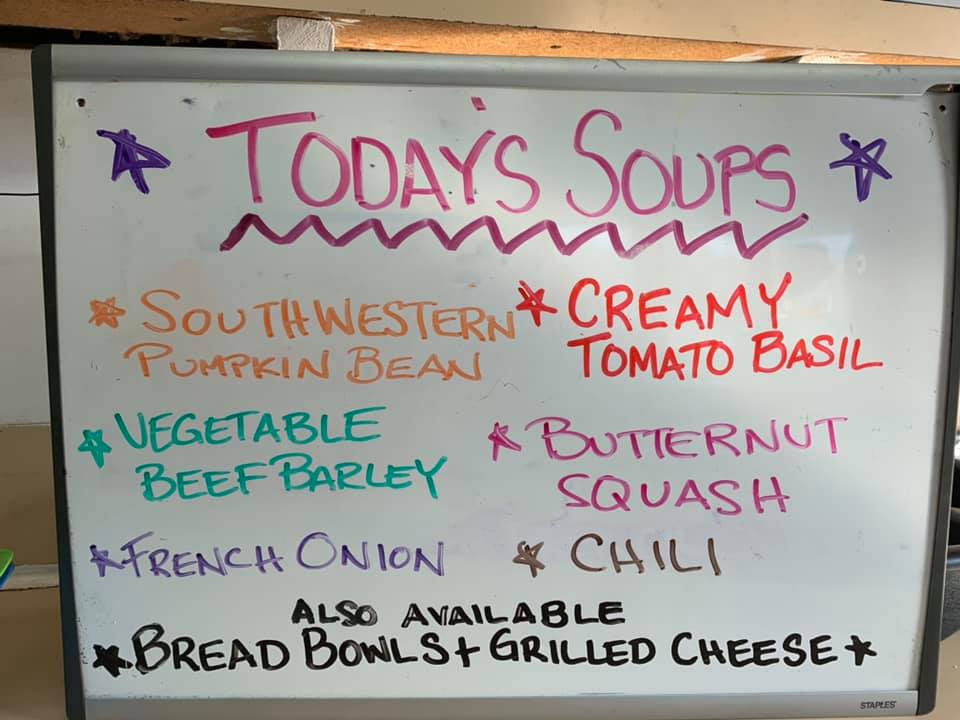 TODAY'S SOUPS
SOUTHWESTERN
PUMPKIN BEAN
CREAMY
TOMATO BASIL
VEGETABLE
BEEF BARLEY
BUTTERNUT
SQUASH
FRENCH ONION
CHILI
ALSO AVAILABLE
BREAD BOWLS + GRILLED CHEESE
STAPLES